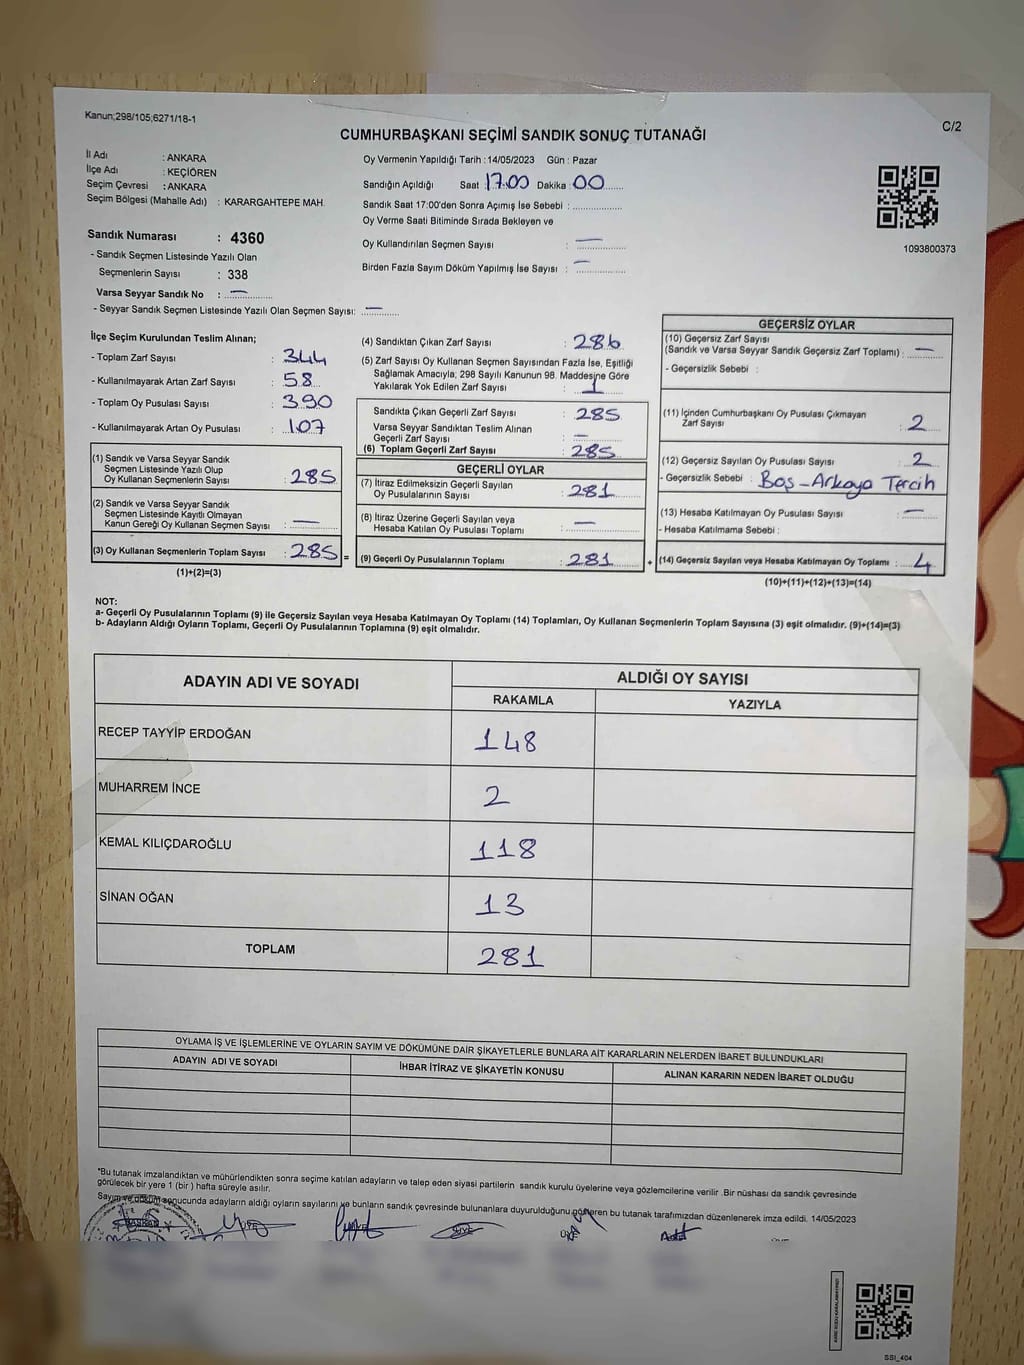 Kanun;298/105;6271/18-1
C/2
CUMHURBAŞKANI SEÇİMİ SANDIK SONUÇ TUTANAĞI
İl Adı : ANKARA
İlçe Adı : KEÇİÖREN
Seçim Çevresi : ANKARA
Seçim Bölgesi (Mahalle Adı) : KARARGAHTEPE MAH.
Sandık Numarası : 4360
- Sandık Seçmen Listesinde Yazılı Olan
Seçmenlerin Sayısı : 338
Varsa Seyyar Sandık No : —
- Seyyar Sandık Seçmen Listesinde Yazılı Olan Seçmen Sayısı: —
Oy Vermenin Yapıldığı Tarih : 14/05/2023 Gün : Pazar
Sandığın Açıldığı Saat 17.00 Dakika : 00
Sandık Saat 17:00'den Sonra Açımış İse Sebebi :
Oy Verme Saati Bitiminde Sırada Bekleyen ve
Oy Kullandırılan Seçmen Sayısı : —
Birden Fazla Sayım Döküm Yapılmış İse Sayısı : —
1093800373
İlçe Seçim Kurulundan Teslim Alınan;
- Toplam Zarf Sayısı : 344
- Kullanılmayarak Artan Zarf Sayısı : 58
- Toplam Oy Pusulası Sayısı : 390
- Kullanılmayarak Artan Oy Pusulası : 107
(1) Sandık ve Varsa Seyyar Sandık
Seçmen Listesinde Yazılı Olup
Oy Kullanan Seçmenlerin Sayısı : 285
(2) Sandık ve Varsa Seyyar Sandık
Seçmen Listesinde Kayıtlı Olmayan
Kanun Gereği Oy Kullanan Seçmen Sayısı : —
(3) Oy Kullanan Seçmenlerin Toplam Sayısı : 285 =
(1)+(2)=(3)
(4) Sandıktan Çıkan Zarf Sayısı : 286
(5) Zarf Sayısı Oy Kullanan Seçmen Sayısından Fazla İse, Eşitliği
Sağlamak Amacıyla; 298 Sayılı Kanunun 98. Maddesine Göre
Yakılarak Yok Edilen Zarf Sayısı : 1
Sandıkta Çıkan Geçerli Zarf Sayısı : 285
Varsa Seyyar Sandıktan Teslim Alınan
Geçerli Zarf Sayısı : —
(6) Toplam Geçerli Zarf Sayısı : 285
GEÇERLİ OYLAR
(7) İtiraz Edilmeksizin Geçerli Sayılan
Oy Pusulalarının Sayısı : 281
(8) İtiraz Üzerine Geçerli Sayılan veya
Hesaba Katılan Oy Pusulası Toplamı : —
(9) Geçerli Oy Pusulalarının Toplamı : 281 +
GEÇERSİZ OYLAR
(10) Geçersiz Zarf Sayısı
(Sandık ve Varsa Seyyar Sandık Geçersiz Zarf Toplamı) : —
- Geçersizlik Sebebi :
(11) İçinden Cumhurbaşkanı Oy Pusulası Çıkmayan
Zarf Sayısı : 2
(12) Geçersiz Sayılan Oy Pusulası Sayısı : 2
- Geçersizlik Sebebi : Boş-Arkaya Tercih
(13) Hesaba Katılmayan Oy Pusulası Sayısı : —
- Hesaba Katılmama Sebebi :
(14) Geçersiz Sayılan veya Hesaba Katılmayan Oy Toplamı : 4
(10)+(11)+(12)+(13)=(14)
NOT:
a- Geçerli Oy Pusulalarının Toplamı (9) ile Geçersiz Sayılan veya Hesaba Katılmayan Oy Toplamı (14) Toplamları, Oy Kullanan Seçmenlerin Toplam Sayısına (3) eşit olmalıdır. (9)+(14)=(3)
b- Adayların Aldığı Oyların Toplamı, Geçerli Oy Pusulalarının Toplamına (9) eşit olmalıdır.
ADAYIN ADI VE SOYADI
ALDIĞI OY SAYISI
RAKAMLA YAZIYLA
RECEP TAYYİP ERDOĞAN 148
MUHARREM İNCE 2
KEMAL KILIÇDAROĞLU 118
SİNAN OĞAN 13
TOPLAM 281
OYLAMA İŞ VE İŞLEMLERİNE VE OYLARIN SAYIM VE DÖKÜMÜNE DAİR ŞİKAYETLERLE BUNLARA AİT KARARLARIN NELERDEN İBARET BULUNDUKLARI
ADAYIN ADI VE SOYADI İHBAR İTİRAZ VE ŞİKAYETİN KONUSU ALINAN KARARIN NEDEN İBARET OLDUĞU
*Bu tutanak imzalandıktan ve mühürlendikten sonra seçime katılan adayların ve talep eden siyasi partilerin sandık kurulu üyelerine veya gözlemcilerine verilir .Bir nüshası da sandık çevresinde
görülecek bir yere 1 (bir ) hafta süreyle asılır.
Sayım ve döküm sonucunda adayların aldığı oyların sayılarını ve bunların sandık çevresinde bulunanlara duyurulduğunu gösteren bu tutanak tarafımızdan düzenlenerek imza edildi. 14/05/2023
BAŞKAN
ÜYE
SSI_404